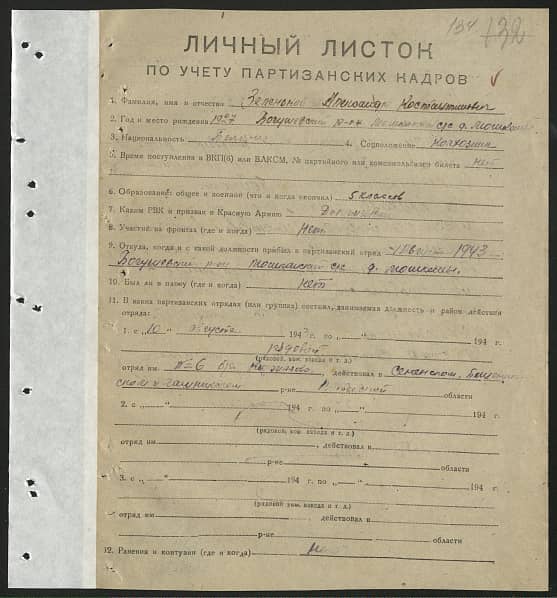 134 132
ЛИЧНЫЙ ЛИСТОК
ПО УЧЕТУ ПАРТИЗАНСКИХ КАДРОВ
1. Фамилия, имя и отчество Александр Константинович
2. Год и место рождения 1927 Богушевский р-он с/с д.
3. Национальность 4. Соцположение Колхозник
5. Время поступления в ВКП(б) или ВЛКСМ, № партийного или комсомольского билета нет
6. Образование: общее и военное (что и когда окончил) 5 классов
7. Каким РВК и призван в Красную Армию
8. Участник на фронтах (где и когда) Нет
9. Откуда, когда и с какой должности прибыл в партизанский отряд 1943
Богушевский р-он с/с д.
10. Был ли в плену (где и когда) нет
11. В каких партизанских отрядах (или группах) состоял, занимаемая должность и район действия
отряда:
1. с „10 “ августа 1943 г. по „ “ 194 г.
рядовой
(рядовой, ком. взвода и т. д.)
отряд им №=6 , действовал в Сененском,
р-не области
2. с „ “ 194 г. по „ “ 194 г.
(рядовой, ком. взвода и т. д.)
отряд им , действовал в
р-не области
3. с „ “ 194 г. по „ “ 194 г.
(рядовой, ком. взвода и т. д.)
отряд им , действовал в
р-не области
12. Ранения и контузии (где и когда)